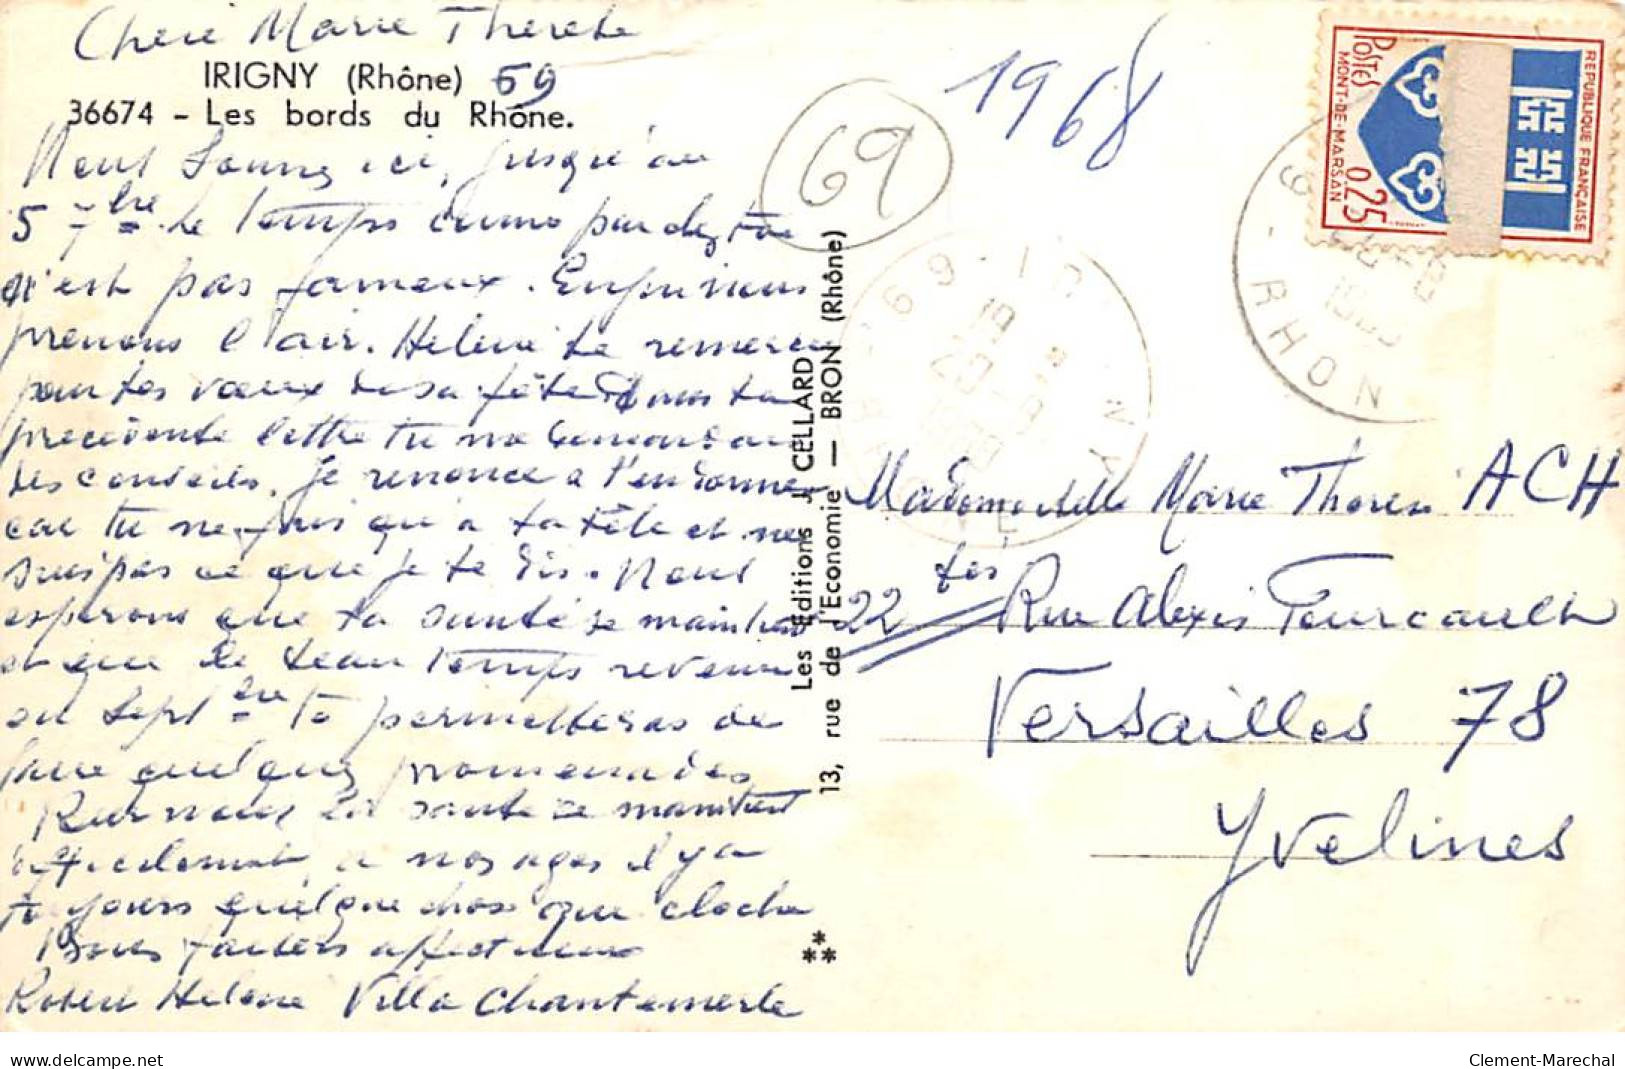 Cheie Marie Therese
IRIGNY (Rhône) 69
36674 - Les bords du Rhône.
Nous sommes ici, jusqu'au
5 7bre. Le temps comme par chez toi
n'est pas fameux. Enfin nous
prenons l'air. Helene te remercie
pour tes vœux de sa fête. Dans ta
precedente lettre tu me demandais
des conseils. Je renonce a t'en donner
car tu ne fais qu'a ta tête et ne
suis pas ce que je te dis. Nous
esperons que ta santé se maintient
et que le beau temps revenu
en Septbre te permetteras de
faire quelques promenades
Pour nous la santé se maintient
a nos ages il y a
toujours quelque chose que cloche
Bons baisers affectueux
Robert Helene Villa Chantemerle
69
1968
REPUBLIQUE FRANÇAISE
POSTES
MONT-DE-MARSAN
0,25
69 - RHONE
Mademoiselle Marie Therese ACH
22 Rue Alexis Fourcault
Versailles 78
Yvelines
Les Editions J. CELLARD
13, rue de l'Economie — BRON (Rhône)
delcampe.net
Clement-Marechal